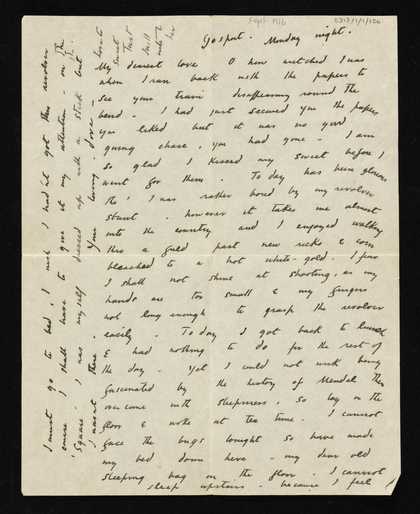 Sept 1916
Gosport. Monday night.
My dearest love O how wretched I was
when I ran back with the papers to
see your train disappearing round the
bend. I had just secured you the papers
you liked but it was no good
giving chase, you had gone - I am
so glad I kissed my sweet before I
went for them. To day has been glorious
tho' I was rather bored by my revolver
stunt. however it takes me almost
into the country and I enjoyed walking
thro a field past new ricks & corn
bleached to a hot white-gold. I fear
I shall not shine at shooting, as my
hands are too small & my fingers
not long enough to grasp the revolver
easily. To day I got back to lunch
& had nothing to do for the rest of
the day. Yet I could not work being
fascinated by the history of Mendel then
overcome with sleepiness. So lay on the
floor & woke at tea time. I cannot
face the bugs tonight so have made
my bed down here - my dear old
sleeping bag on the floor. I cannot
sleep upstairs - because I feel
I must go to bed. I wish I hadn't got this revolver
course I shall have to give it my attention - on the
'Square' I was myself dressed up with a stick but
I wasn't there. Your loving